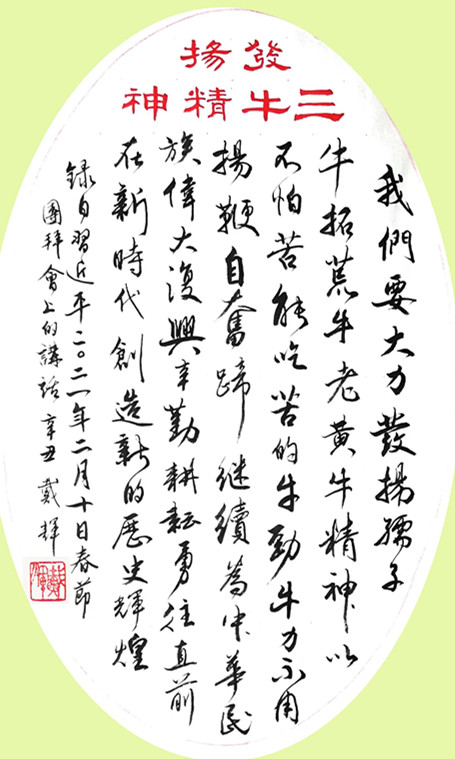 發揚
三牛精神
我們要大力發揚孺子
牛拓荒牛老黃牛精神以
不怕苦能吃苦的牛勁牛力不用
揚鞭自奮蹄继續為中華民
族偉大復興辛勤耕耘勇往直前
在新時代創造新的歷史輝煌
録自習近平二〇二一年二月十日春節
團拜會上的講話 辛丑 戴輝